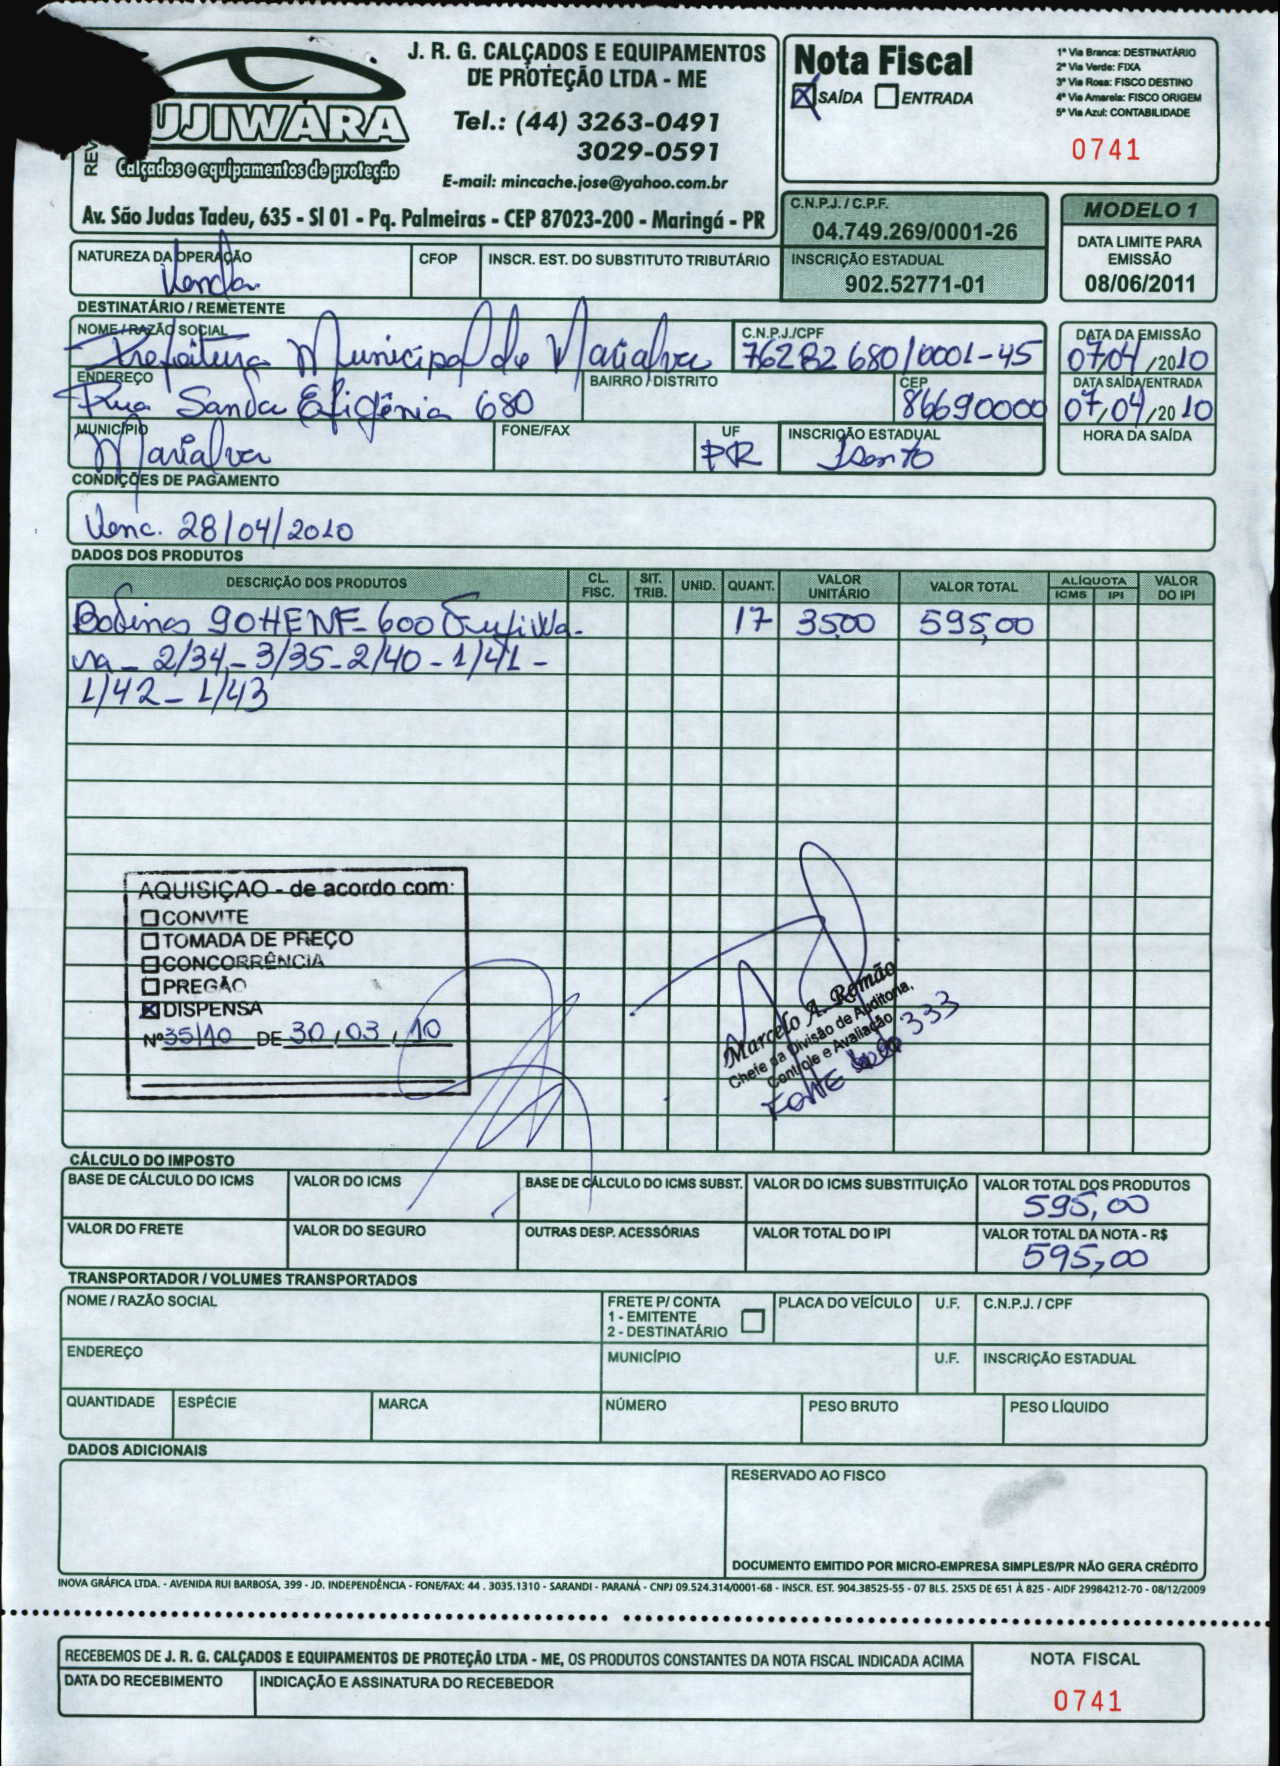 J. R. G. CALÇADOS E EQUIPAMENTOS
DE PROTEÇÃO LTDA - ME
Tel.: (44) 3263-0491
3029-0591
E-mail: mincache.jose@yahoo.com.br
REV
UJIWARA
Calçados e equipamentos de proteção
Av. São Judas Tadeu, 635 - Sl 01 - Pq. Palmeiras - CEP 87023-200 - Maringá - PR
Nota Fiscal
X SAÍDA ENTRADA
1ª Via Branca: DESTINATÁRIO
2ª Via Verde: FIXA
3ª Via Rosa: FISCO DESTINO
4ª Via Amarela: FISCO ORIGEM
5ª Via Azul: CONTABILIDADE
0741
C.N.P.J. / C.P.F.
04.749.269/0001-26
INSCRIÇÃO ESTADUAL
902.52771-01
MODELO 1
DATA LIMITE PARA
EMISSÃO
08/06/2011
NATUREZA DA OPERAÇÃO CFOP INSCR. EST. DO SUBSTITUTO TRIBUTÁRIO
Venda
DESTINATÁRIO / REMETENTE
NOME / RAZÃO SOCIAL C.N.P.J./CPF DATA DA EMISSÃO
Prefeitura Municipal de Marialva 76282680/0001-45 07/04/2010
ENDEREÇO BAIRRO / DISTRITO CEP DATA SAÍDA/ENTRADA
Rua Santa Efigênia 680 86690000 07/04/2010
MUNICÍPIO FONE/FAX UF INSCRIÇÃO ESTADUAL HORA DA SAÍDA
Marialva PR Isento
CONDIÇÕES DE PAGAMENTO
Venc. 28/04/2010
DADOS DOS PRODUTOS
DESCRIÇÃO DOS PRODUTOS CL. FISC. SIT. TRIB. UNID. QUANT. VALOR UNITÁRIO VALOR TOTAL ALÍQUOTA ICMS IPI VALOR DO IPI
Botinas 90HENF-600 Fujiwa- 17 35,00 595,00
ra - 2/34 - 3/35 - 2/40 - 1/41 -
1/42 - 1/43
AQUISIÇÃO - de acordo com:
CONVITE
TOMADA DE PREÇO
CONCORRÊNCIA
PREGÃO
X DISPENSA
Nº 35/10 DE 30/03/10
Marcelo A. Romão
Chefe da Divisão de Auditoria,
Controle e Avaliação
FONTE 333
CÁLCULO DO IMPOSTO
BASE DE CÁLCULO DO ICMS VALOR DO ICMS BASE DE CÁLCULO DO ICMS SUBST. VALOR DO ICMS SUBSTITUIÇÃO VALOR TOTAL DOS PRODUTOS
595,00
VALOR DO FRETE VALOR DO SEGURO OUTRAS DESP. ACESSÓRIAS VALOR TOTAL DO IPI VALOR TOTAL DA NOTA - R$
595,00
TRANSPORTADOR / VOLUMES TRANSPORTADOS
NOME / RAZÃO SOCIAL FRETE P/ CONTA PLACA DO VEÍCULO U.F. C.N.P.J. / CPF
1 - EMITENTE
2 - DESTINATÁRIO
ENDEREÇO MUNICÍPIO U.F. INSCRIÇÃO ESTADUAL
QUANTIDADE ESPÉCIE MARCA NÚMERO PESO BRUTO PESO LÍQUIDO
DADOS ADICIONAIS
RESERVADO AO FISCO
DOCUMENTO EMITIDO POR MICRO-EMPRESA SIMPLES/PR NÃO GERA CRÉDITO
INOVA GRÁFICA LTDA. - AVENIDA RUI BARBOSA, 399 - JD. INDEPENDÊNCIA - FONE/FAX: 44 . 3035.1310 - SARANDI - PARANÁ - CNPJ 09.524.314/0001-68 - INSCR. EST. 904.38525-55 - 07 BLS. 25X5 DE 651 À 825 - AIDF 29984212-70 - 08/12/2009
RECEBEMOS DE J. R. G. CALÇADOS E EQUIPAMENTOS DE PROTEÇÃO LTDA - ME, OS PRODUTOS CONSTANTES DA NOTA FISCAL INDICADA ACIMA
DATA DO RECEBIMENTO INDICAÇÃO E ASSINATURA DO RECEBEDOR
NOTA FISCAL
0741